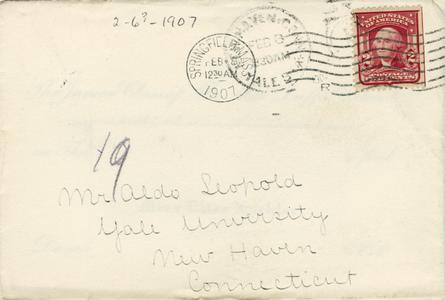 2-6?-1907
SPRINGFIELD, MASS.
FEB
1230AM
1907
HAVEN, C
FEB 8
30AM
YALE S
UNITED STATES
OF AMERICA
2 POSTAGE 2
R
19
Mr Aldo Leopold
Yale University
New Haven
Connecticut